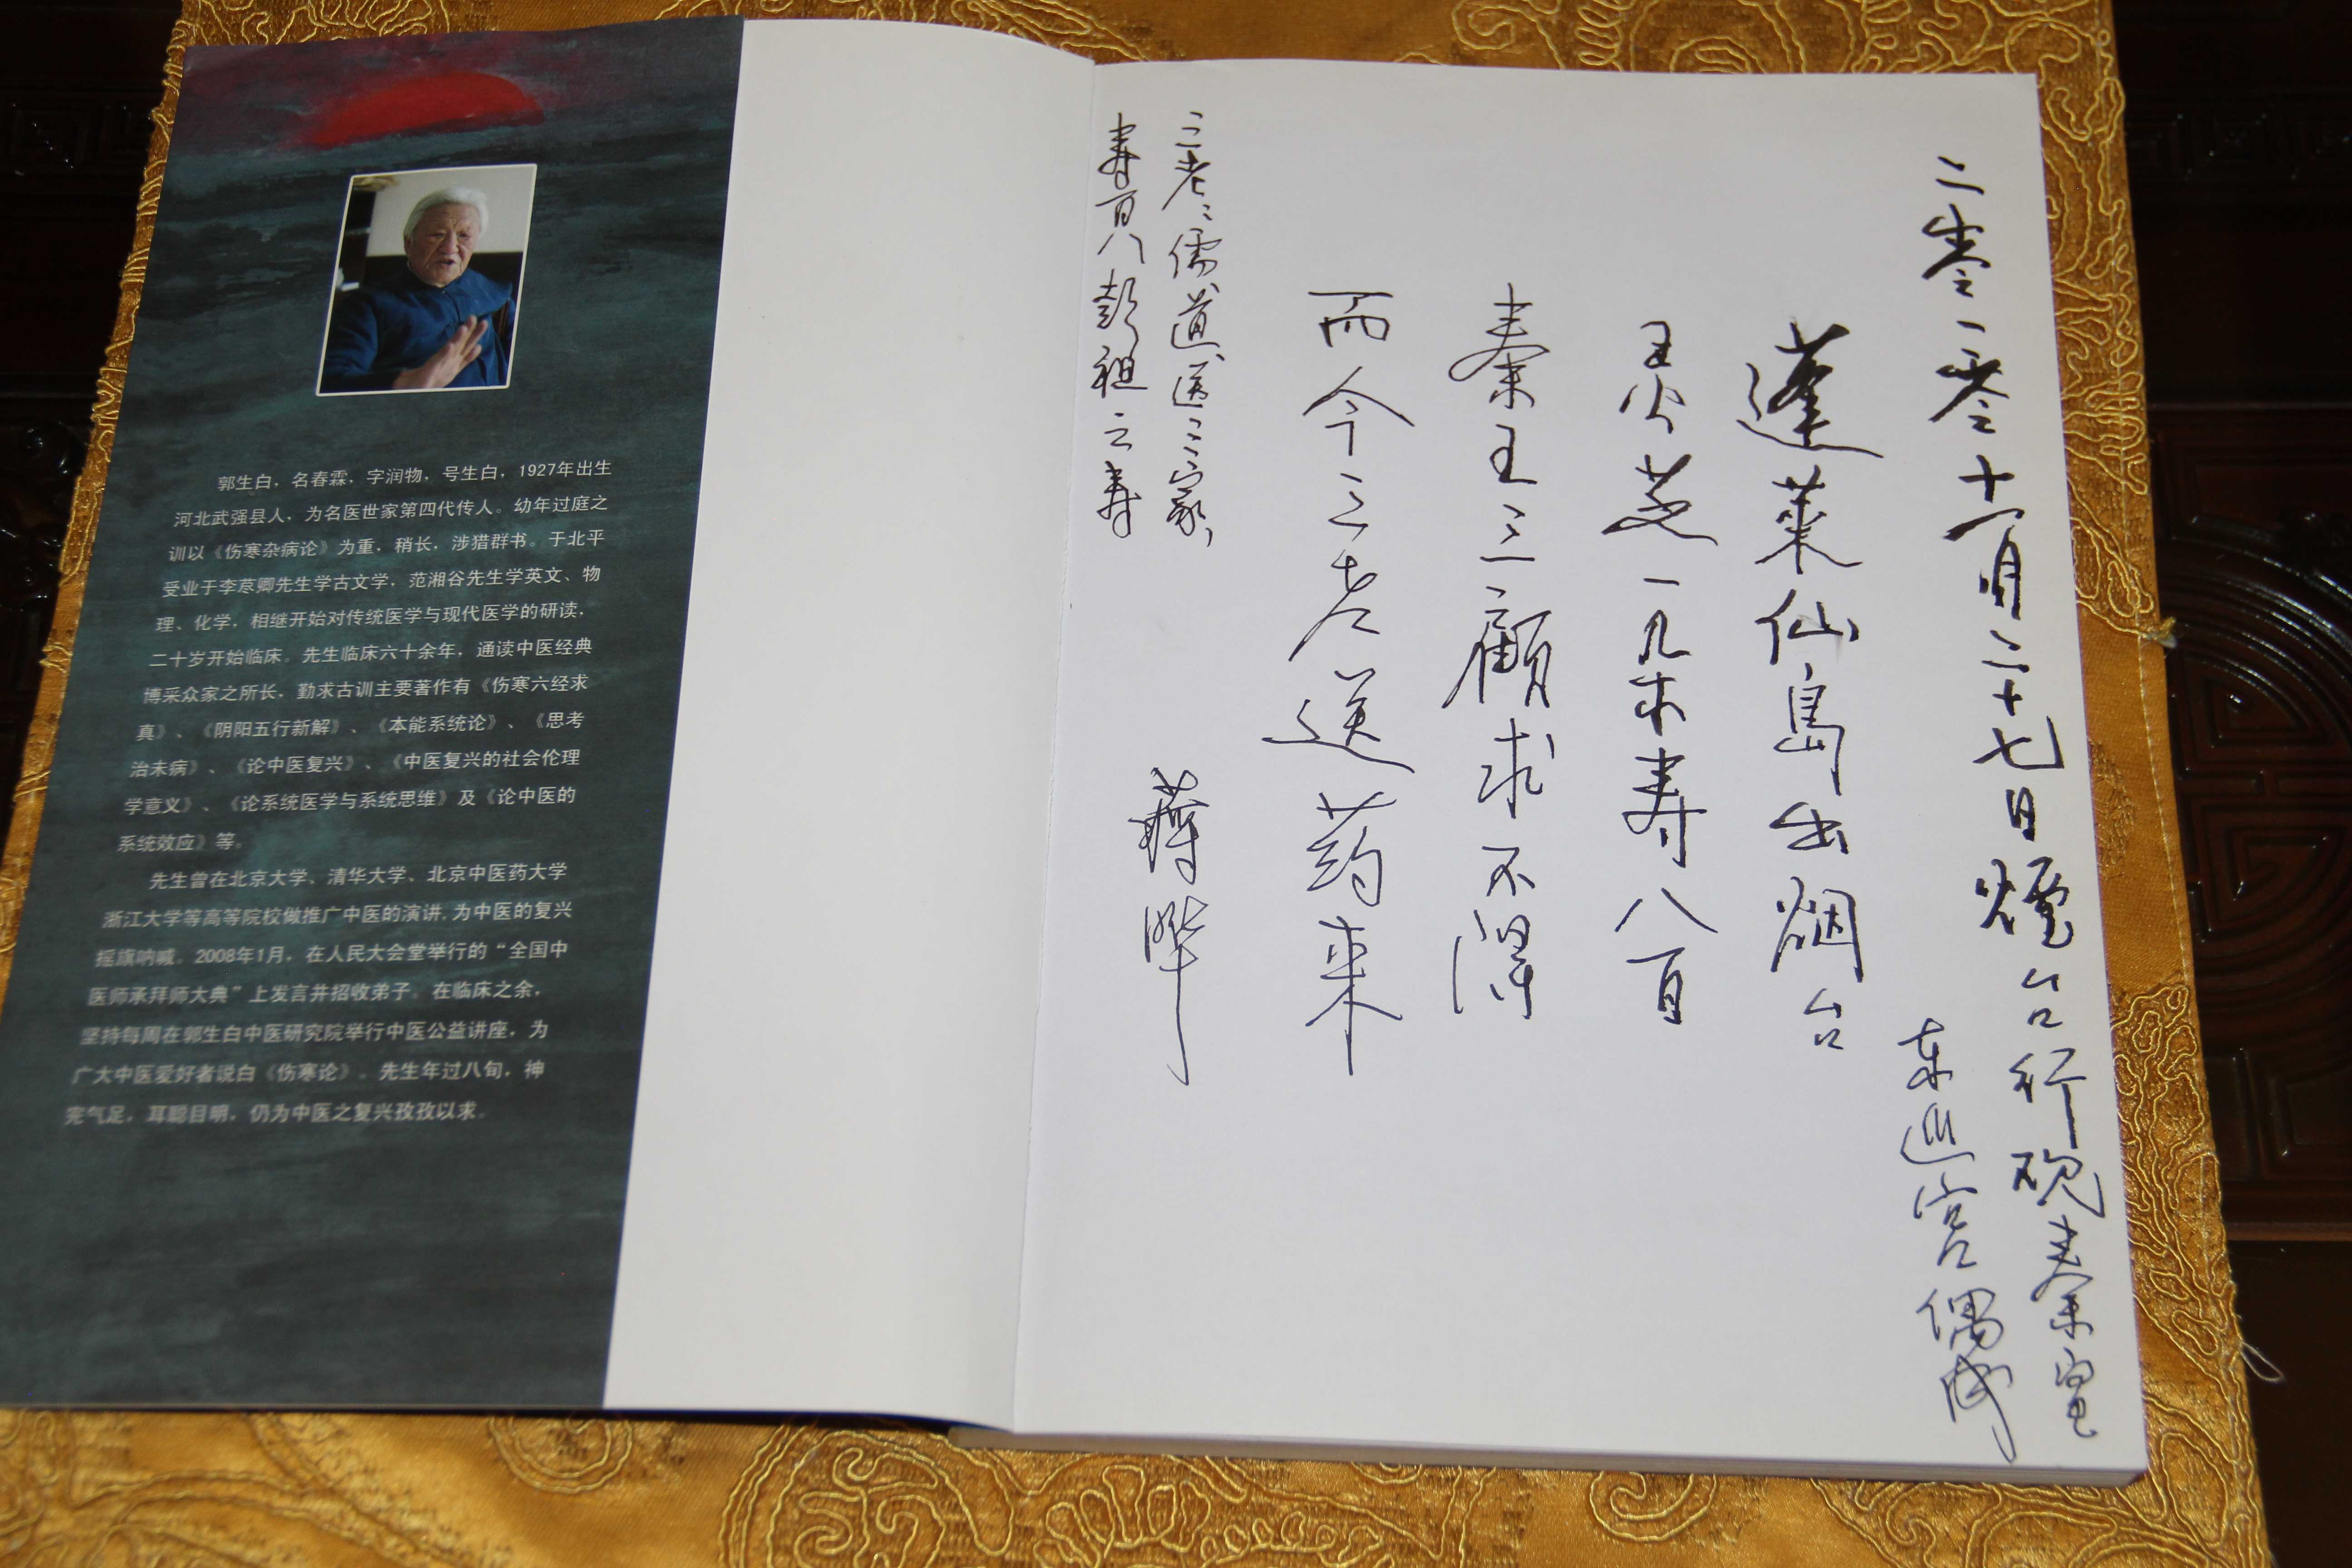 郭生白，名春霖，字润物，号生白，1927年出生
河北武强县人，为名医世家第四代传人。幼年过庭之
训以《伤寒杂病论》为重，稍长，涉猎群书。于北平
受业于李荩卿先生学古文学，范湘谷先生学英文、物
理、化学，相继开始对传统医学与现代医学的研读，
二十岁开始临床。先生临床六十余年，通读中医经典
博采众家之所长，勤求古训主要著作有《伤寒六经求
真》、《阴阳五行新解》、《本能系统论》、《思考
治未病》、《论中医复兴》、《中医复兴的社会伦理
学意义》、《论系统医学与系统思维》及《论中医的
系统效应》等。
先生曾在北京大学、清华大学、北京中医药大学
浙江大学等高等院校做推广中医的演讲，为中医的复兴
摇旗呐喊。2008年1月，在人民大会堂举行的“全国中
医师承拜师大典”上发言并招收弟子。在临床之余，
坚持每周在郭生白中医研究院举行中医公益讲座，为
广大中医爱好者说白《伤寒论》。先生年过八旬，神
完气足，耳聪目明，仍为中医之复兴孜孜以求。
二零一零十一月二十七日煙台行观秦皇
东巡宫偶成
蓬莱仙島出烟台
灵芝一儿木寿八百
秦王三顧求不得
而今三老送药来
三老：儒道医三家，
寿百八彭祖之寿